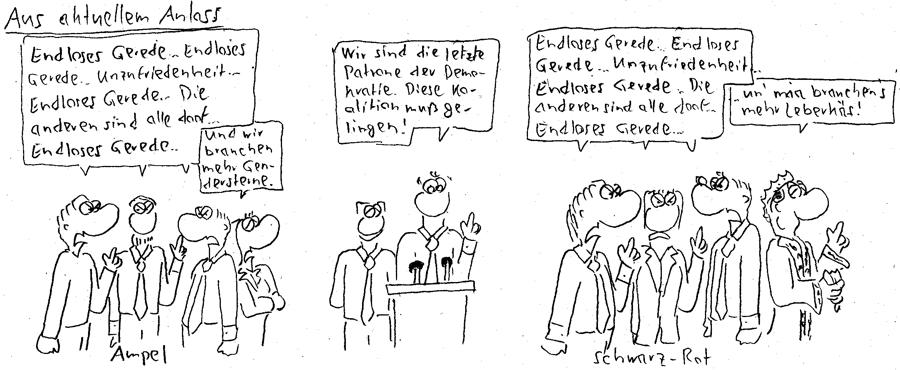 Aus aktuellem Anlass
Endloses Gerede... Endloses
Gerede... Unzufriedenheit...
Endloses Gerede... Die
anderen sind alle doof...
Endloses Gerede...
Und wir
brauchen
mehr Gen-
dersterne.
Ampel
Wir sind die letzte
Patrone der Demo-
kratie. Diese Ko-
alition muß ge-
lingen!
Endloses Gerede... Endloses
Gerede... Unzufriedenheit...
Endloses Gerede... Die
anderen sind alle doof...
Endloses Gerede...
un' mia brauchens
mehr Leberkäs!
Schwarz-Rot